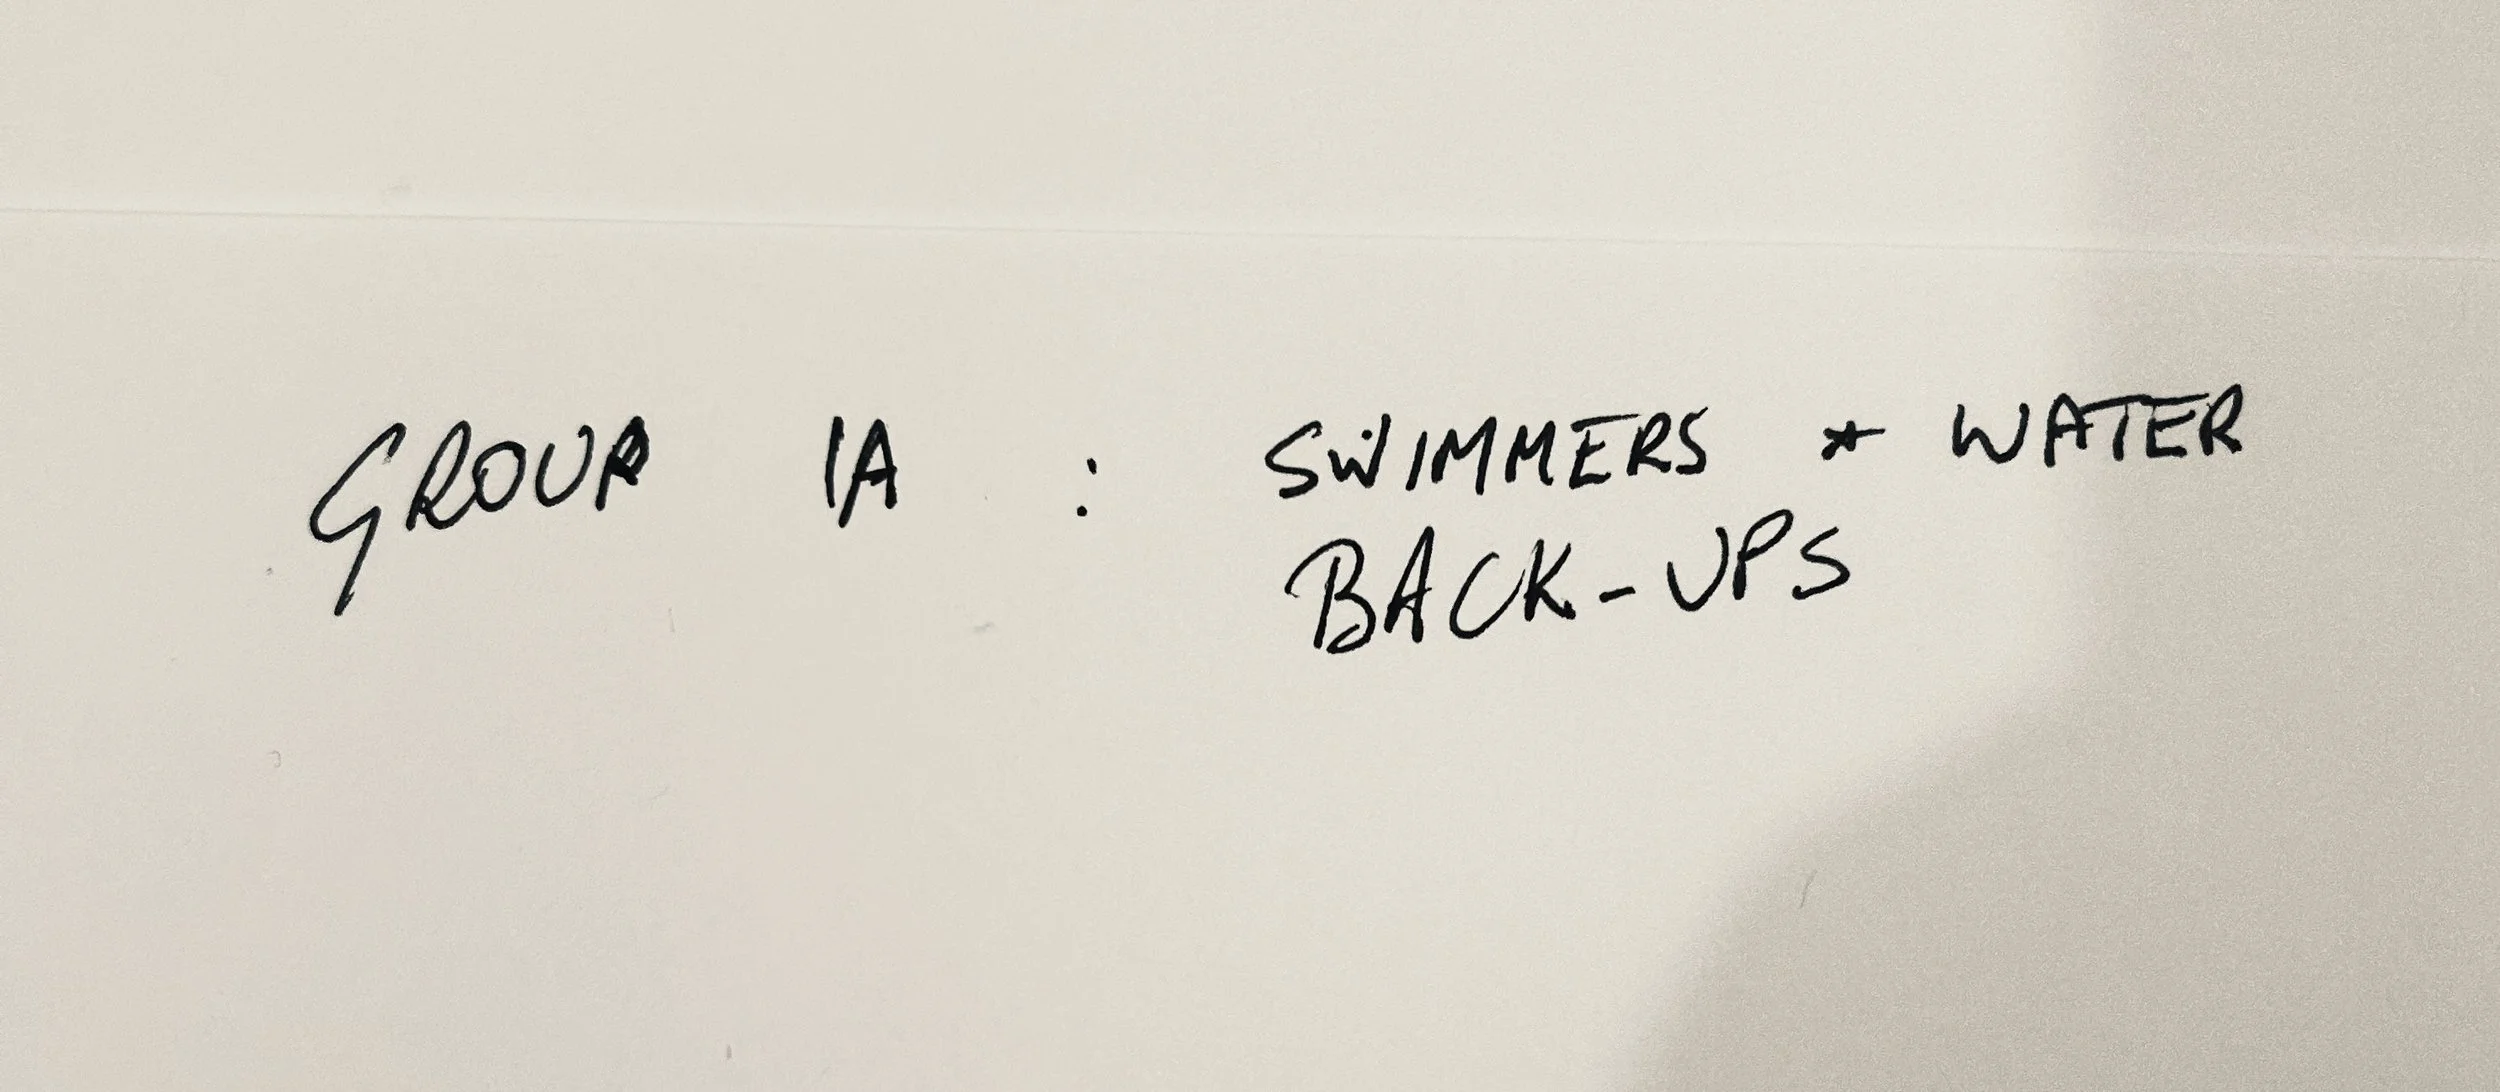 GROUP 1A : SWIMMERS * WATER
BACK-UPS